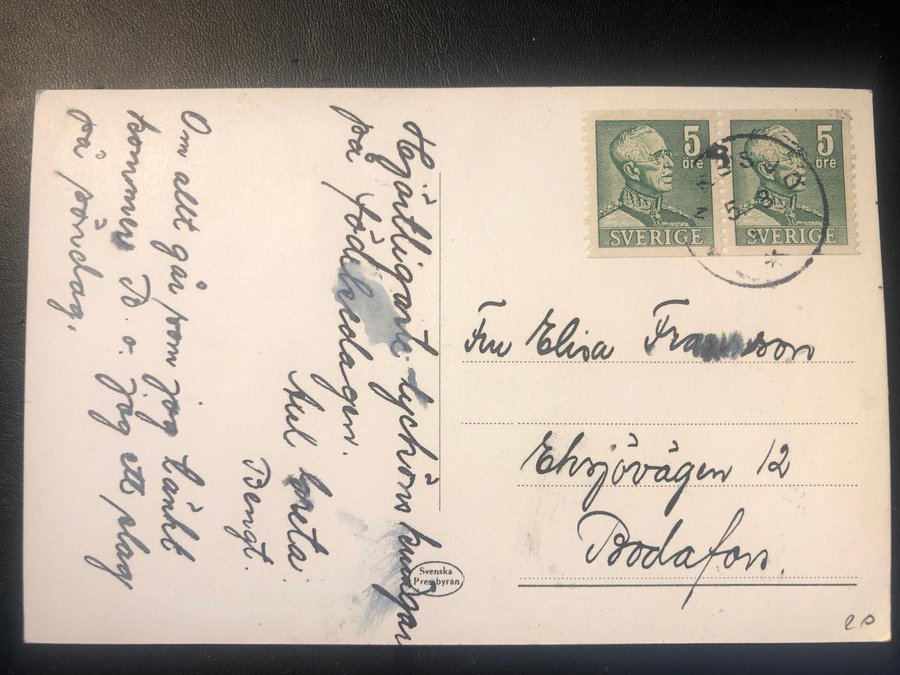 Hjärtligaste lyckönskningar
på födelsedagen.
Bengt.
Om allt går som jag tänkt
kommer B. o. jag ett slag
på söndag.
Svenska
Pressbyrån
5
öre
SVERIGE
5
öre
SVERIGE
5 8
Fru Elisa Fransson
Eksjövägen 12
Bodafors.
20